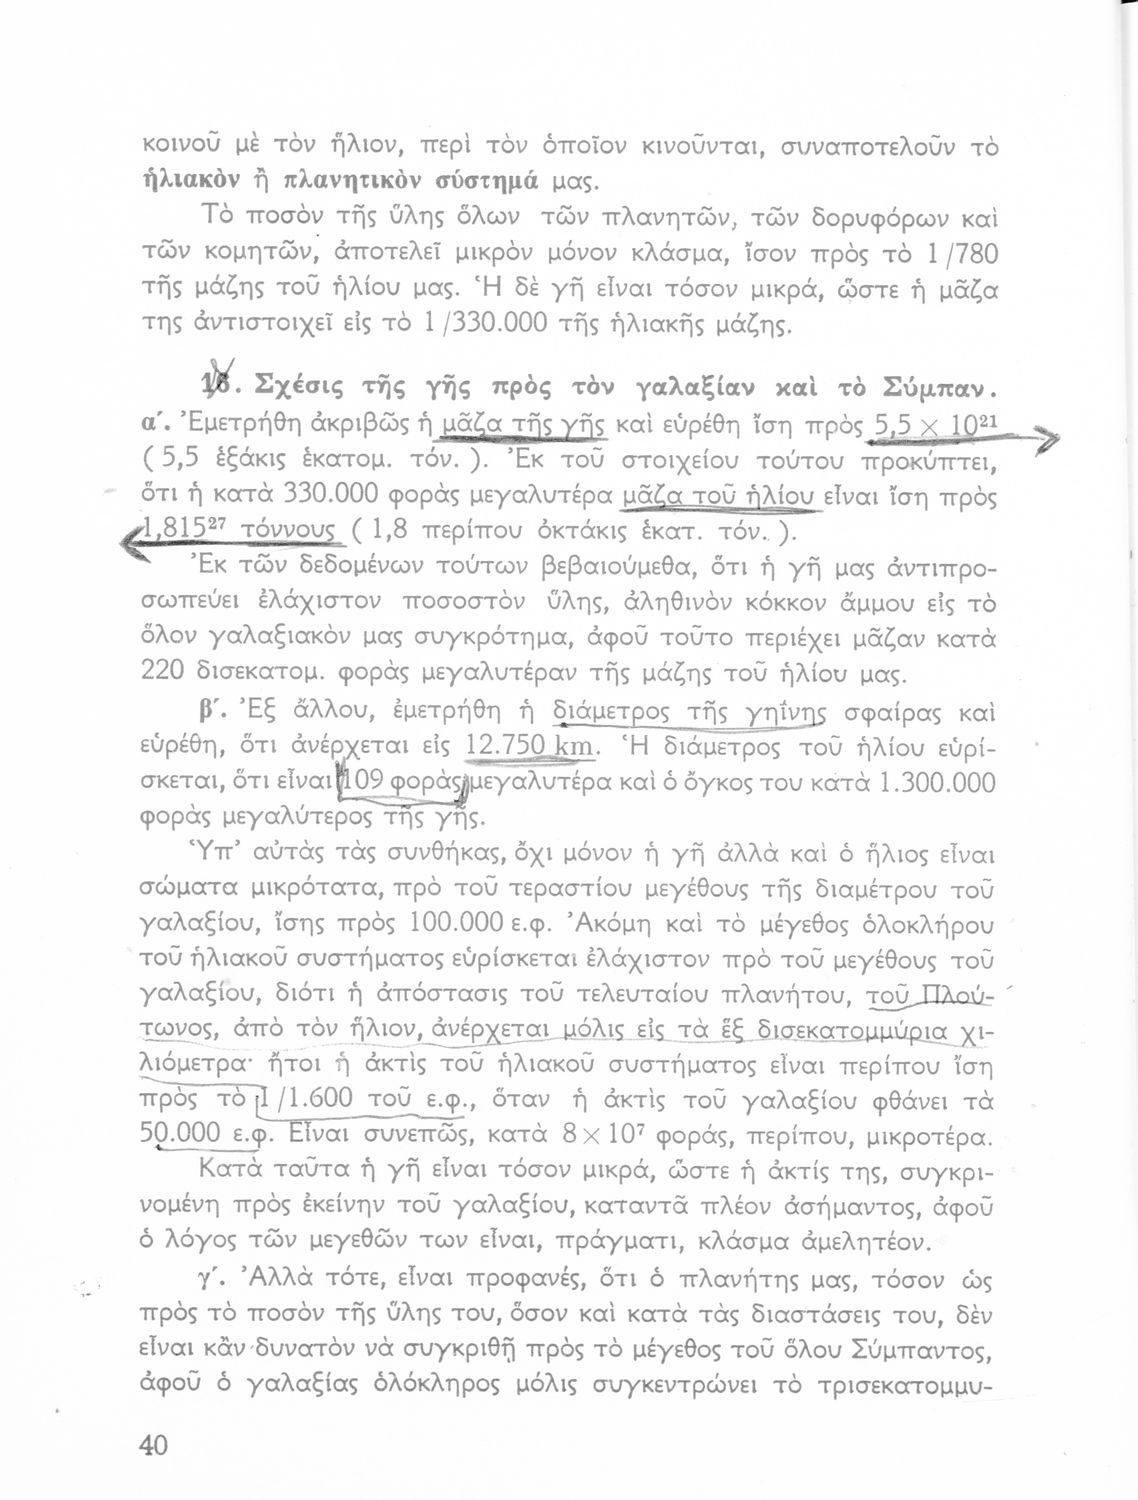 κοινοῦ μὲ τὸν ἥλιον, περὶ τὸν ὁποῖον κινοῦνται, συναποτελοῦν τὸ
ἡλιακὸν ἢ πλανητικὸν σύστημά μας.
Τὸ ποσὸν τῆς ὕλης ὅλων τῶν πλανητῶν, τῶν δορυφόρων καὶ
τῶν κομητῶν, ἀποτελεῖ μικρὸν μόνον κλάσμα, ἴσον πρὸς τὸ 1/780
τῆς μάζης τοῦ ἡλίου μας. Ἡ δὲ γῆ εἶναι τόσον μικρά, ὥστε ἡ μᾶζα
της ἀντιστοιχεῖ εἰς τὸ 1/330.000 τῆς ἡλιακῆς μάζης.
18. Σχέσις τῆς γῆς πρὸς τὸν γαλαξίαν καὶ τὸ Σύμπαν.
α΄. Ἐμετρήθη ἀκριβῶς ἡ μᾶζα τῆς γῆς καὶ εὑρέθη ἴση πρὸς 5,5 × 10²¹
( 5,5 ἑξάκις ἑκατομ. τόν. ). Ἐκ τοῦ στοιχείου τούτου προκύπτει,
ὅτι ἡ κατὰ 330.000 φορὰς μεγαλυτέρα μᾶζα τοῦ ἡλίου εἶναι ἴση πρὸς
1,815²⁷ τόννους ( 1,8 περίπου ὀκτάκις ἑκατ. τόν. ).
Ἐκ τῶν δεδομένων τούτων βεβαιούμεθα, ὅτι ἡ γῆ μας ἀντιπρο-
σωπεύει ἐλάχιστον ποσοστὸν ὕλης, ἀληθινὸν κόκκον ἄμμου εἰς τὸ
ὅλον γαλαξιακὸν μας συγκρότημα, ἀφοῦ τοῦτο περιέχει μᾶζαν κατὰ
220 δισεκατομ. φορὰς μεγαλυτέραν τῆς μάζης τοῦ ἡλίου μας.
β΄. Ἐξ ἄλλου, ἐμετρήθη ἡ διάμετρος τῆς γηΐνης σφαίρας καὶ
εὑρέθη, ὅτι ἀνέρχεται εἰς 12.750 km. Ἡ διάμετρος τοῦ ἡλίου εὑρί-
σκεται, ὅτι εἶναι 109 φορὰς μεγαλυτέρα καὶ ὁ ὄγκος του κατὰ 1.300.000
φορὰς μεγαλύτερος τῆς γῆς.
Ὑπ’ αὐτὰς τὰς συνθήκας, ὄχι μόνον ἡ γῆ ἀλλὰ καὶ ὁ ἥλιος εἶναι
σώματα μικρότατα, πρὸ τοῦ τεραστίου μεγέθους τῆς διαμέτρου τοῦ
γαλαξίου, ἴσης πρὸς 100.000 ε.φ. Ἀκόμη καὶ τὸ μέγεθος ὁλοκλήρου
τοῦ ἡλιακοῦ συστήματος εὑρίσκεται ἐλάχιστον πρὸ τοῦ μεγέθους τοῦ
γαλαξίου, διότι ἡ ἀπόστασις τοῦ τελευταίου πλανήτου, τοῦ Πλού-
τωνος, ἀπὸ τὸν ἥλιον, ἀνέρχεται μόλις εἰς τὰ ἓξ δισεκατομμύρια χι-
λιόμετρα· ἤτοι ἡ ἀκτὶς τοῦ ἡλιακοῦ συστήματος εἶναι περίπου ἴση
πρὸς τὸ 1/1.600 τοῦ ε.φ., ὅταν ἡ ἀκτὶς τοῦ γαλαξίου φθάνει τὰ
50.000 ε.φ. Εἶναι συνεπῶς, κατὰ 8 × 10⁷ φοράς, περίπου, μικροτέρα.
Κατὰ ταῦτα ἡ γῆ εἶναι τόσον μικρά, ὥστε ἡ ἀκτίς της, συγκρι-
νομένη πρὸς ἐκείνην τοῦ γαλαξίου, καταντᾶ πλέον ἀσήμαντος, ἀφοῦ
ὁ λόγος τῶν μεγεθῶν των εἶναι, πράγματι, κλάσμα ἀμελητέον.
γ΄. Ἀλλὰ τότε, εἶναι προφανές, ὅτι ὁ πλανήτης μας, τόσον ὡς
πρὸς τὸ ποσὸν τῆς ὕλης του, ὅσον καὶ κατὰ τὰς διαστάσεις του, δὲν
εἶναι κἂν δυνατὸν νὰ συγκριθῇ πρὸς τὸ μέγεθος τοῦ ὅλου Σύμπαντος,
ἀφοῦ ὁ γαλαξίας ὁλόκληρος μόλις συγκεντρώνει τὸ τρισεκατομμυ-
40